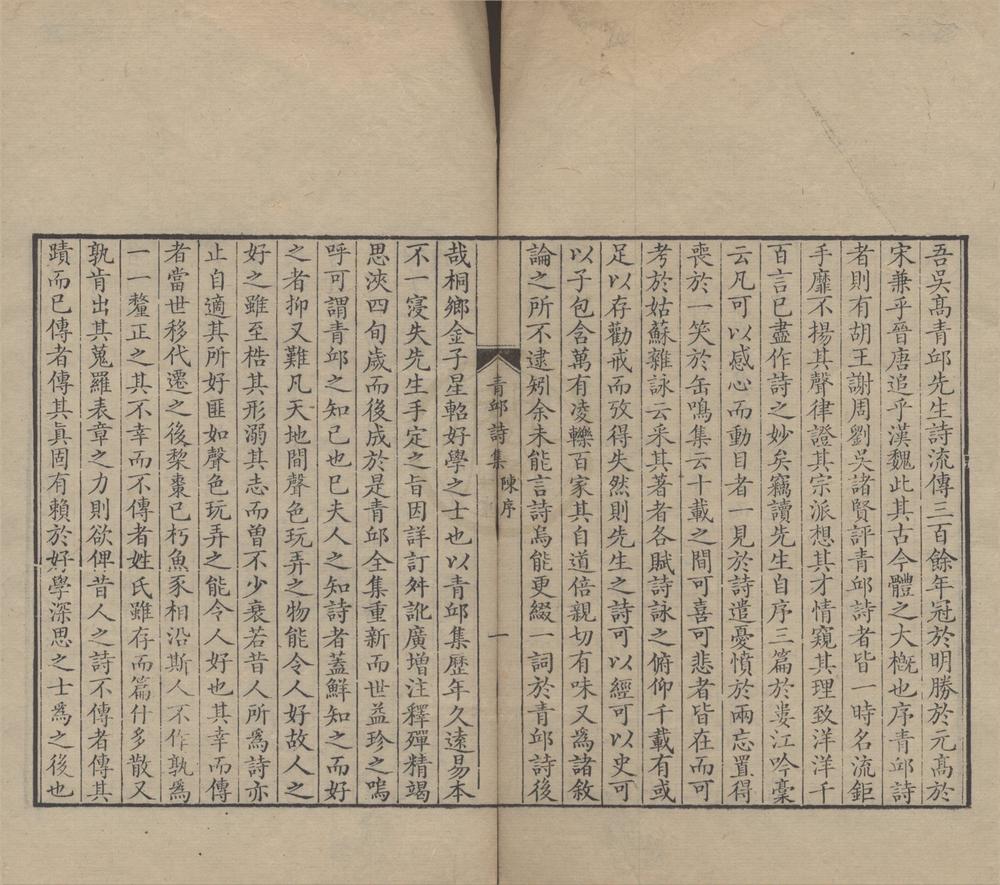 吾吳髙青邱先生詩流傳三百餘年冠於明勝於元髙於
宋兼乎晉唐追乎漢魏此其古今體之大槪也序青邱詩
者則有胡王謝周劉吳諸賢評青邱詩者皆一時名流鉅
手靡不揚其聲律證其宗派想其才情窺其理致洋洋千
百言已盡作詩之妙矣竊讀先生自序三篇於婁江吟稾
云凡可以感心而動目者一見於詩遣憂憤於兩忘置得
喪於一笑於缶鳴集云十載之間可喜可悲者皆在而可
考於姑蘇雜詠云釆其著者各賦詩詠之俯仰千載有或
足以存勸戒而攷得失然則先生之詩可以經可以史可
以子包含萬有凌轢百家其自道倍親切有味又為諸敘
論之所不逮矧余未能言詩烏能更綴一詞於青邱詩後
青邱詩集 陳序 一
哉桐鄉金子星軺好學之士也以青邱集歷年久遠易本
不一寖失先生手定之旨因詳訂舛訛廣增注釋殫精竭
思浹四旬歲而後成於是青邱全集重新而世益珍之嗚
呼可謂青邱之知己也已夫人之知詩者蓋鮮知之而好
之者抑又難凡天地間聲色玩弄之物能令人好故人之
好之雖至梏其形溺其志而曽不少衰若昔人所為詩亦
止自適其所好匪如聲色玩弄之能令人好也其幸而傳
者當世移代遷之後棃棗已朽魚豕相沿斯人不作孰為
一一釐正之其不幸而不傳者姓氏雖存而篇什多散又
孰肯出其蒐羅表章之力則欲俾昔人之詩不傳者傳其
蹟而已傳者傳其眞固有賴於好學深思之士為之後也